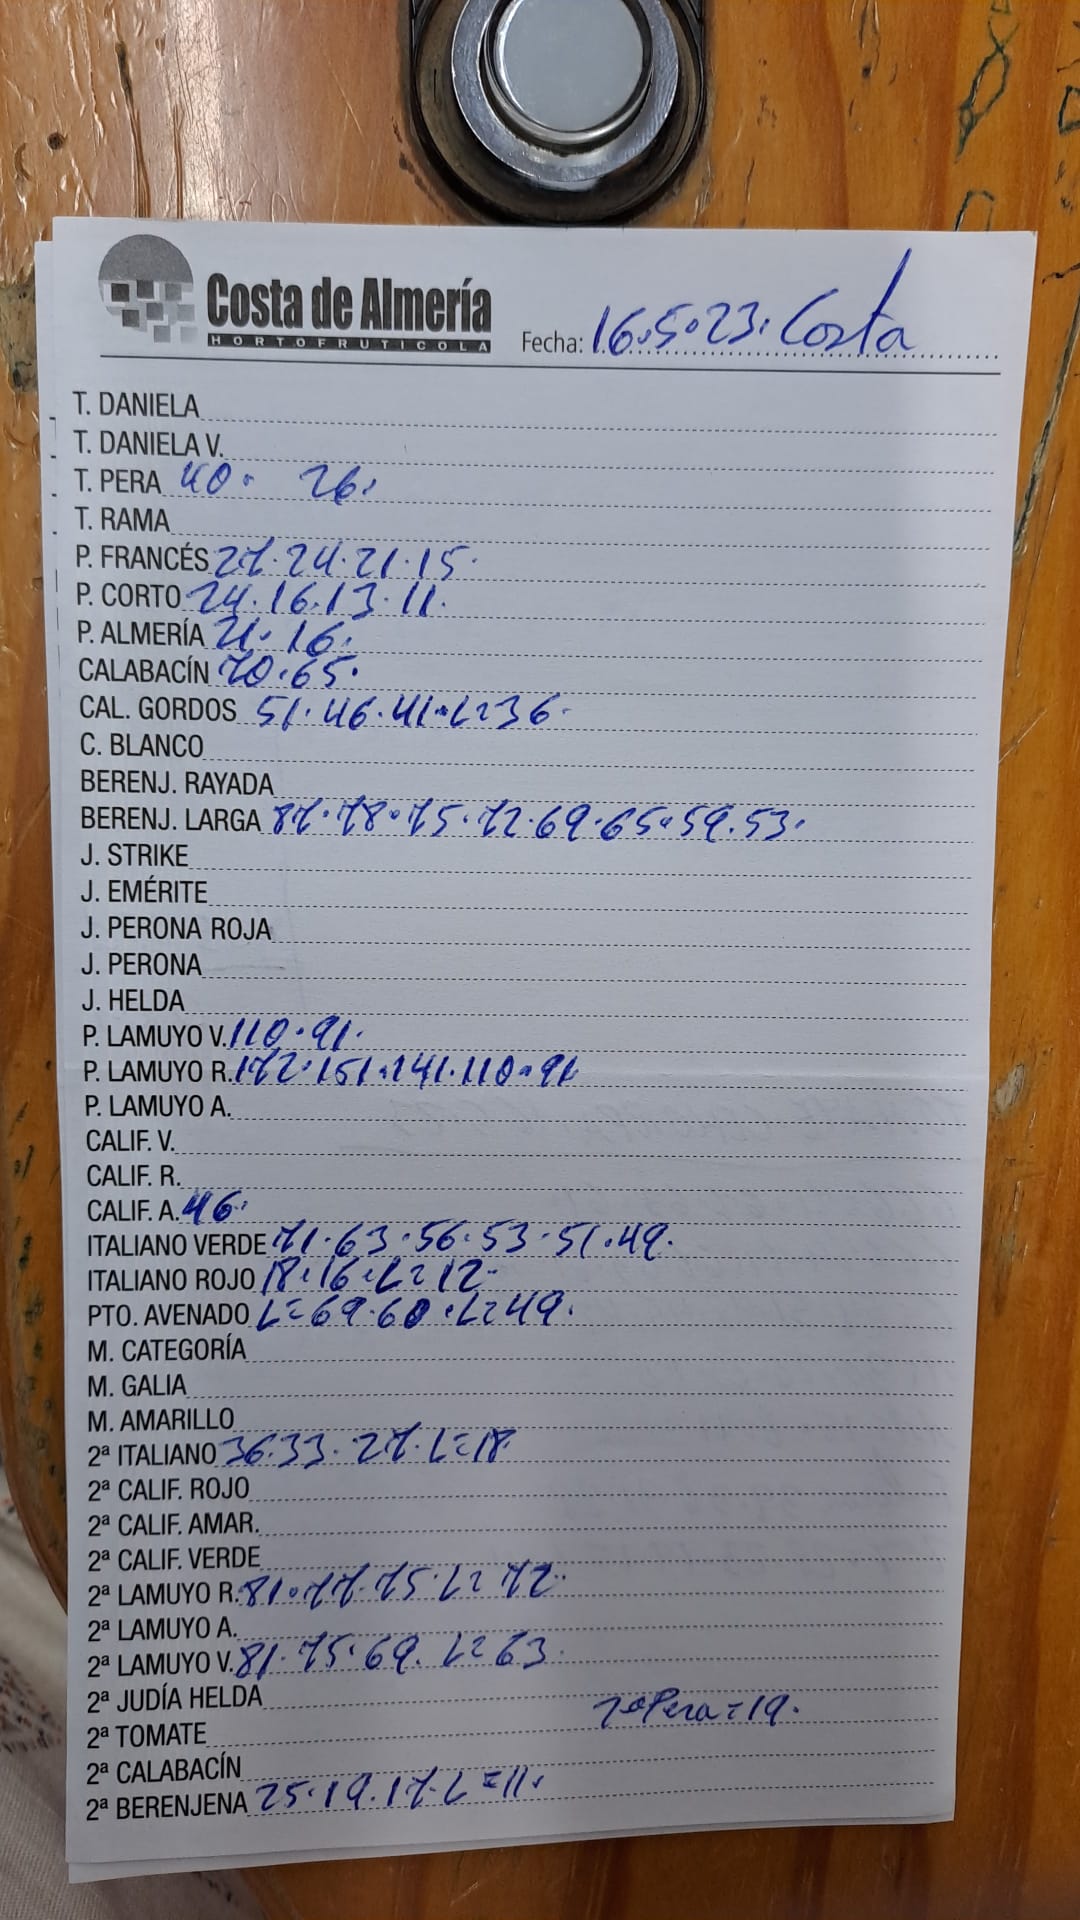 Costa de Almería
HORTOFRUTICOLA
Fecha: 16.5.23. Costa
T. DANIELA
T. DANIELA V.
T. PERA 40. 26.
T. RAMA
P. FRANCÉS 27.24.21.15.
P. CORTO 24.16.13.11.
P. ALMERÍA 21.16.
CALABACÍN 70.65.
CAL. GORDOS 51.46.41.L=36.
C. BLANCO
BERENJ. RAYADA
BERENJ. LARGA 87.78.75.72.69.65.59.53.
J. STRIKE
J. EMÉRITE
J. PERONA ROJA
J. PERONA
J. HELDA
P. LAMUYO V. 110.91.
P. LAMUYO R. 172.151.141.110.91
P. LAMUYO A.
CALIF. V.
CALIF. R.
CALIF. A. 46.
ITALIANO VERDE 71.63.56.53.51.49.
ITALIANO ROJO 18.16.L=12.
PTO. AVENADO L=69.60.L=49.
M. CATEGORÍA
M. GALIA
M. AMARILLO
2ª ITALIANO 36.33.27.L=18.
2ª CALIF. ROJO
2ª CALIF. AMAR.
2ª CALIF. VERDE
2ª LAMUYO R. 81.77.75.L=72.
2ª LAMUYO A.
2ª LAMUYO V. 81.75.69.L=63.
2ª JUDÍA HELDA
2ª Pera=19.
2ª TOMATE
2ª CALABACÍN
2ª BERENJENA 25.19.17.L=11.